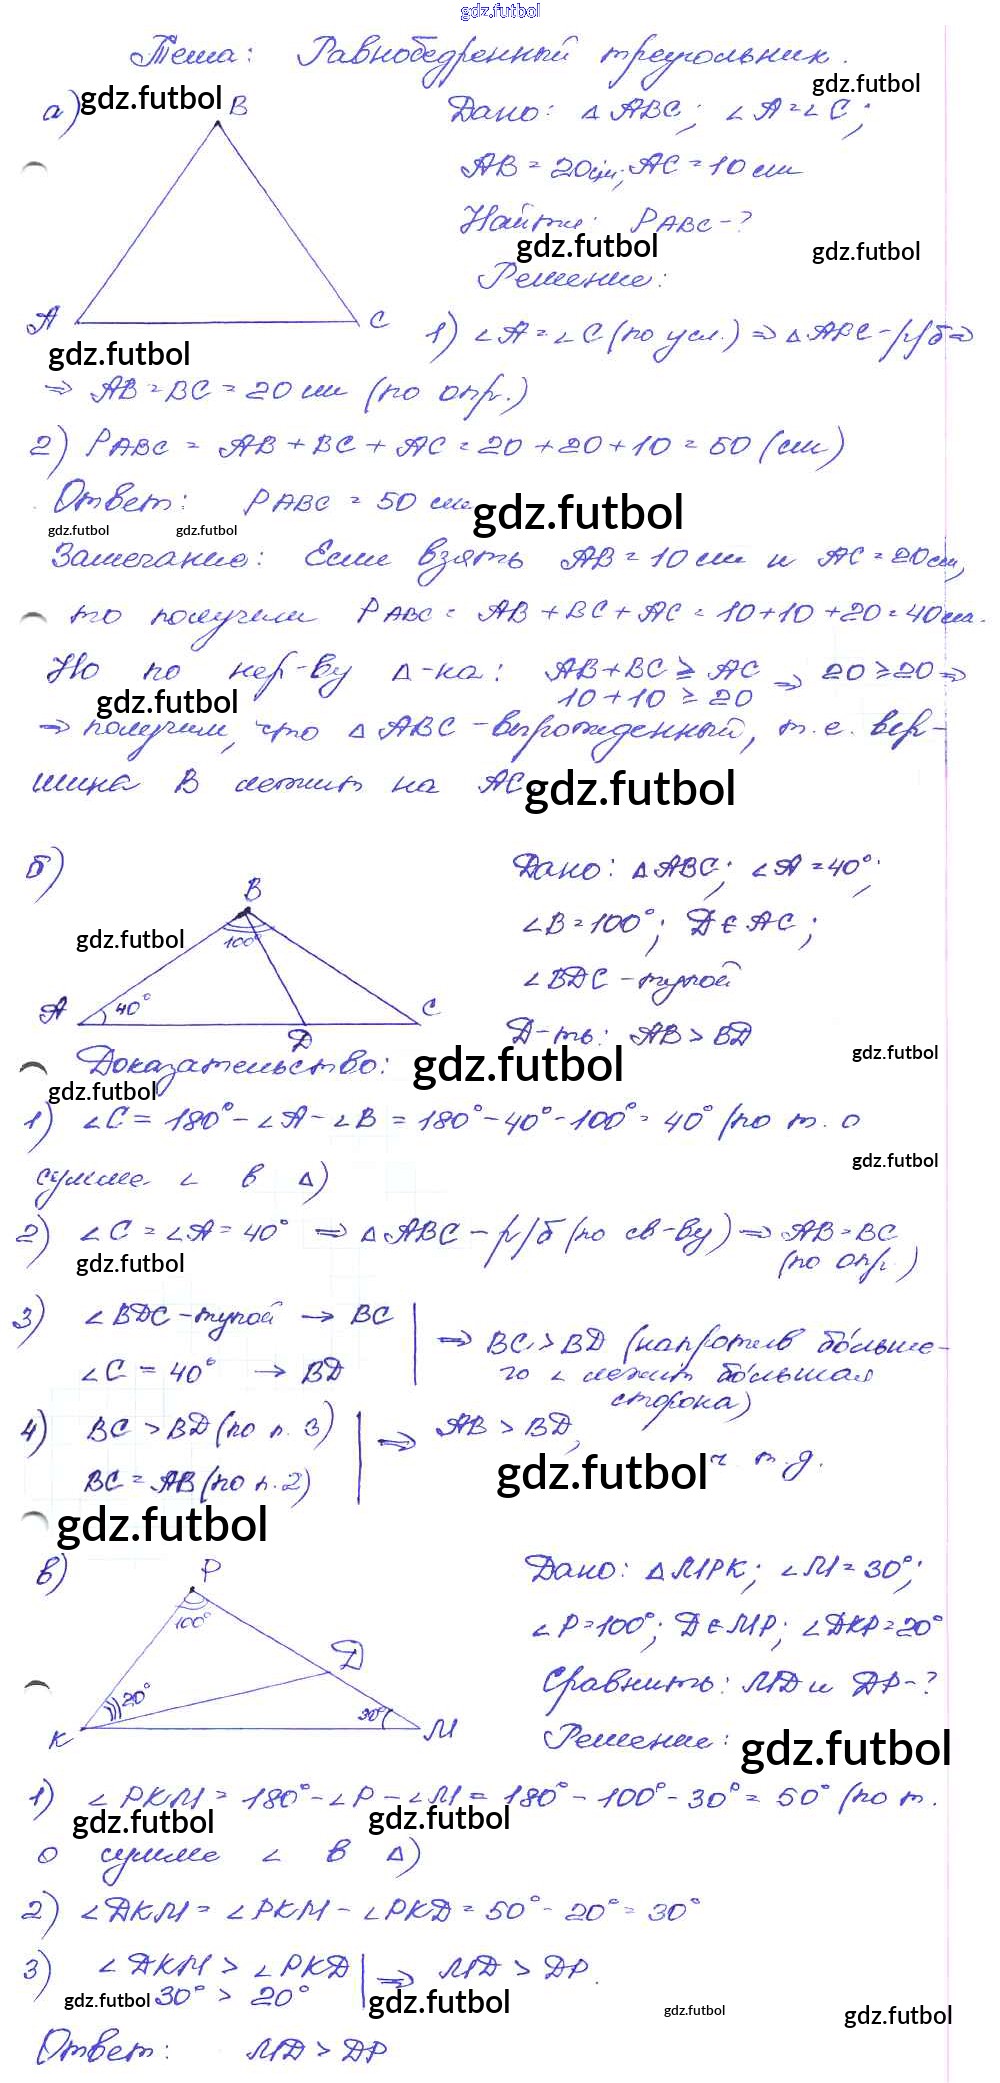 gdz.futbol
Тема: Равнобедренный треугольник.
gdz.futbol
а) gdz.futbol B
Дано: △ ABC; ∠A = ∠C;
AB = 20 см; AC = 10 см
Найти: P ABC - ?
gdz.futbol gdz.futbol
Решение:
A C
1) ∠A = ∠C (по усл.) ⇒ △ ABC - р/б ⇒
gdz.futbol
⇒ AB = BC = 20 см (по опр.)
2) P ABC = AB + BC + AC = 20 + 20 + 10 = 50 (см)
Ответ: P ABC = 50 см gdz.futbol
gdz.futbol gdz.futbol
Замечание: Если взять AB = 10 см и AC = 20 см,
то получим P ABC = AB + BC + AC = 10 + 10 + 20 = 40 см.
Но по нер-ву △-ка: AB + BC ≥ AC ⇒ 20 ≥ 20 ⇒
10 + 10 ≥ 20
gdz.futbol
⇒ получим, что △ ABC - вырожденный, т. е. вер-
шина B лежит на AC gdz.futbol
б)
B
100°
A 40° D C
gdz.futbol
Дано: △ ABC; ∠A = 40°;
∠B = 100°; D ∈ AC;
∠BDC - тупой
Д-ть: AB > BD
gdz.futbol
Доказательство: gdz.futbol
gdz.futbol
1) ∠C = 180° - ∠A - ∠B = 180° - 40° - 100° = 40° (по т. о
gdz.futbol
сумме ∠ в △)
2) ∠C = ∠A = 40° ⇒ △ ABC - р/б (по св-ву) ⇒ AB = BC
(по опр.)
gdz.futbol
3) ∠BDC - тупой → BC
∠C = 40° → BD
⇒ BC > BD (напротив бо́льше-
го ∠ лежит бо́льшая
сторона)
4) BC > BD (по п. 3)
BC = AB (по п. 2)
⇒ AB > BD,
gdz.futbol ч. т. д.
gdz.futbol
в)
P
100°
D
20° 30°
K M
Дано: △ MPK; ∠M = 30°;
∠P = 100°; D ∈ MP; ∠DKP = 20°
Сравнить: MD и DP - ?
Решение: gdz.futbol
1) ∠PKM = 180° - ∠P - ∠M = 180° - 100° - 30° = 50° (по т.
gdz.futbol gdz.futbol
о сумме ∠ в △)
2) ∠DKM = ∠PKM - ∠PKD = 50° - 20° = 30°
3) ∠DKM > ∠PKD ⇒ MD > DP.
30° > 20°
gdz.futbol gdz.futbol gdz.futbol gdz.futbol
Ответ: MD > DP